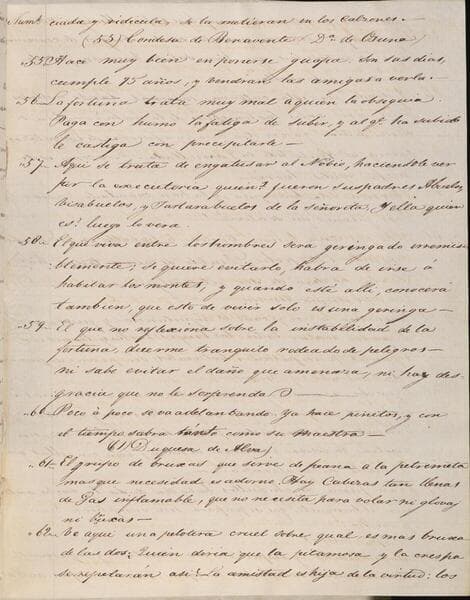 Num.º cuada y ridicula, se la metieran en los Calzones.—
(55) Condesa de Benavente D.ª de Osuna)
55 Hace muy bien en ponerse guapa. Son sus dias,
cumple 75 años, y vendran las amigas a verla.—
56. La fortuna trata muy mal a quien la obsequia.
Paga con humo la fatiga de subir, y al q.e ha subido
le castiga con precipitarle—
57. Aqui se trata de engatusar al Nobio, haciendole ver
por la executoria quien.s fueron sus padres Abuelos,
bisabuelos, y Tartarabuelos de la señorita. Y ella quien
es? luego lo vera.
58. El que viva entre los hombres sera geringado irremisi-
blemente; si quiere evitarlo, habra de irse á
habitar los montes, y quando esté alli, conocerá
tambien, que esto de vivir solo es una geringa—
59. El que no reflexiona sobre la instabilidad de la
fortuna, duerme tranquilo rodeado de peligros—
ni sabe evitar el daño que amenaza, ni hay des-
gracia que no le sorprenda—
60 Poco á poco se va adelantando. Ya hace pinitos, y con
el tiempo sabra tanto como su maestra—
(61) Duquesa de Alva)
61. El grupo de bruxas que sirve de peana a la petrimetra
mas que necesidad es adorno. Hay Cabezas tan llenas
de Gas inflamable, que no necesita para volar ni globo,
ni bruxas—
62. Ve aqui una pelotera cruel sobre qual es mas bruxa
de las dos: Quien diria que la pitamosa y la crespa
se repelarán asi? La amistad es hija de la virtud: los